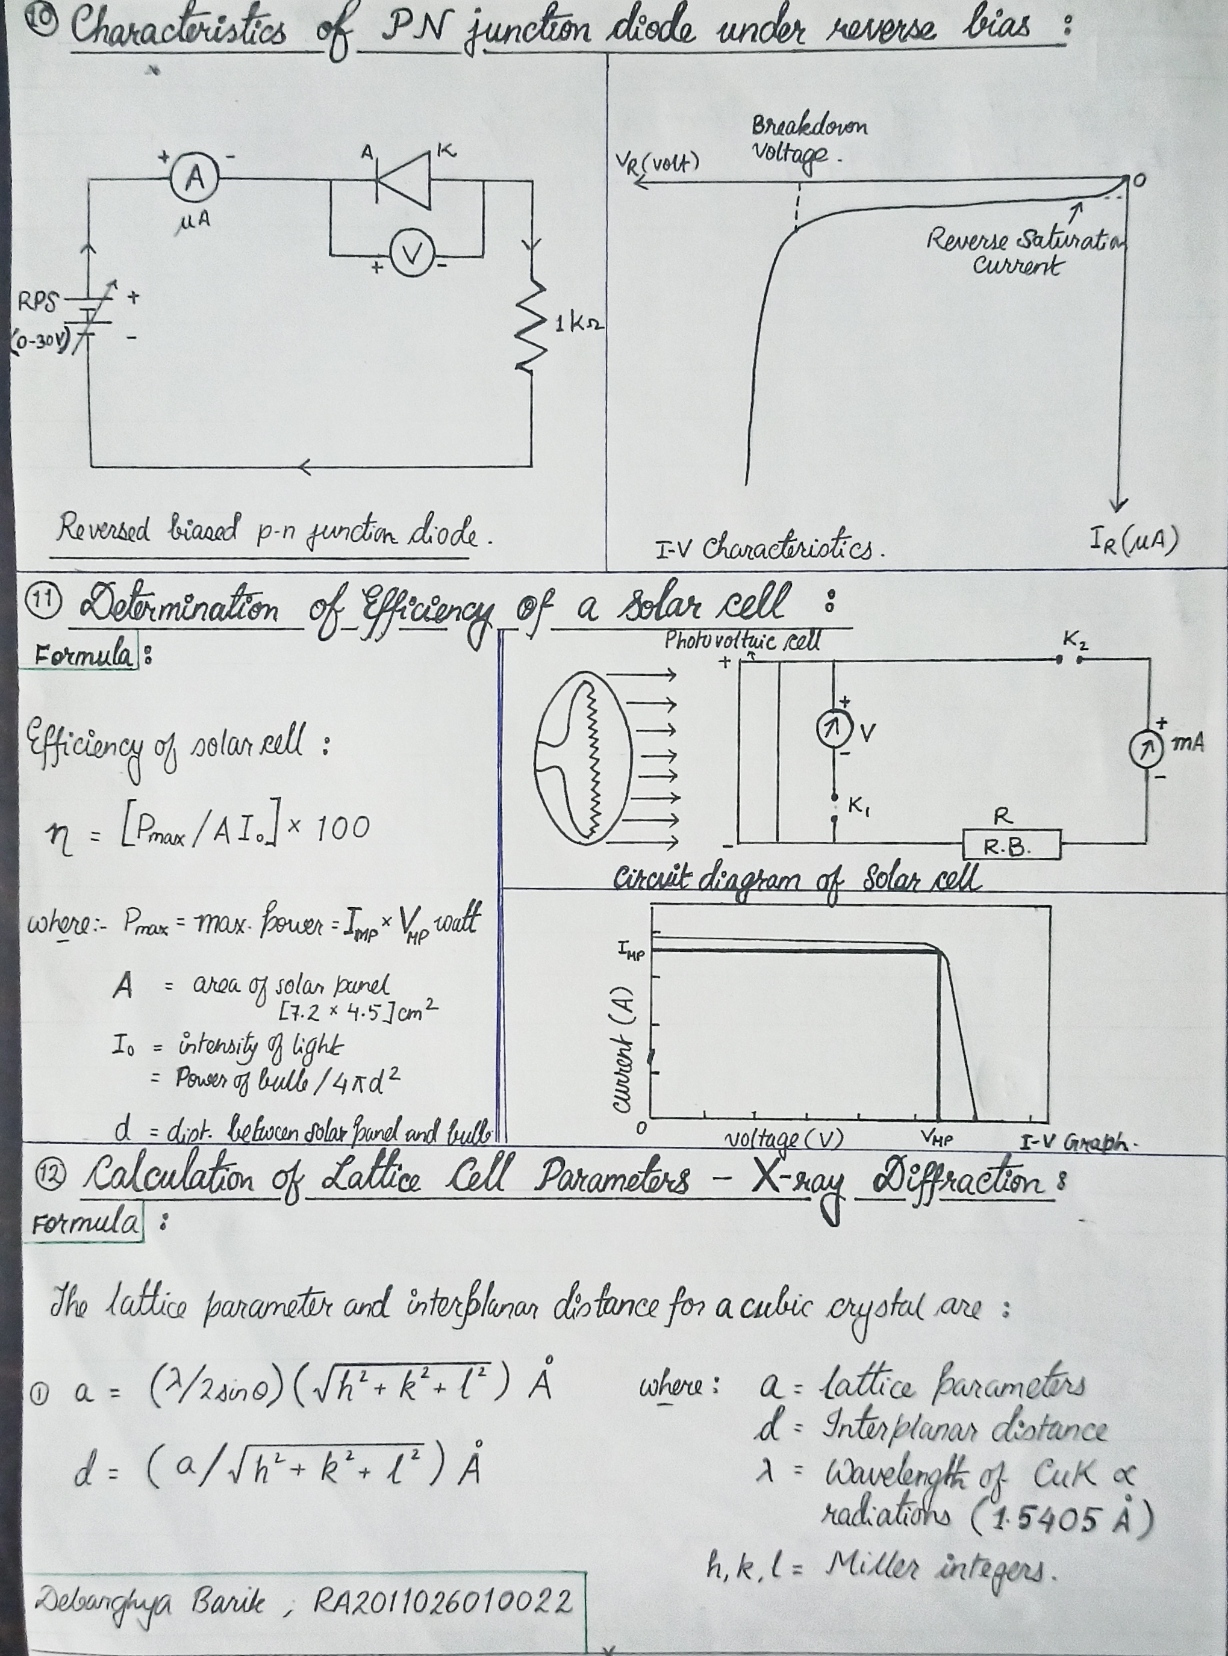 ⑩ Characteristics of PN junction diode under reverse bias :
+ A -
μA
A K
+ V -
RPS
(0-30V)
+
-
1KΩ
Reversed biased p-n junction diode.
Breakdown
Voltage.
VR(volt)
O
Reverse Saturation
Current
IR(μA)
I-V Characteristics.
⑪ Determination of Efficiency of a Solar cell :
Formula :
Efficiency of solar cell :
η = [Pmax / A I₀] × 100
where:- Pmax = max. power = IMP × VMP watt
A = area of solar panel
[7.2 × 4.5] cm²
I₀ = intensity of light
= Power of bulb / 4πd²
d = dist. between solar panel and bulb
Photovoltaic cell
+
-
+
V
-
K₁
K₂
+
mA
-
R
R.B.
Circuit diagram of Solar cell
IMP
current (A)
0
voltage (V)
VMP
I-V Graph.
⑫ Calculation of Lattice Cell Parameters - X-ray Diffraction :
Formula :
The lattice parameter and interplanar distance for a cubic crystal are :
① a = (λ/2sinθ)(√h²+k²+l²) Å
d = (a/√h²+k²+l²) Å
where : a = lattice parameters
d = Interplanar distance
λ = Wavelength of CuK α
radiations (1.5405 Å)
h, k, l = Miller integers.
Debarghya Barik , RA2011026010022